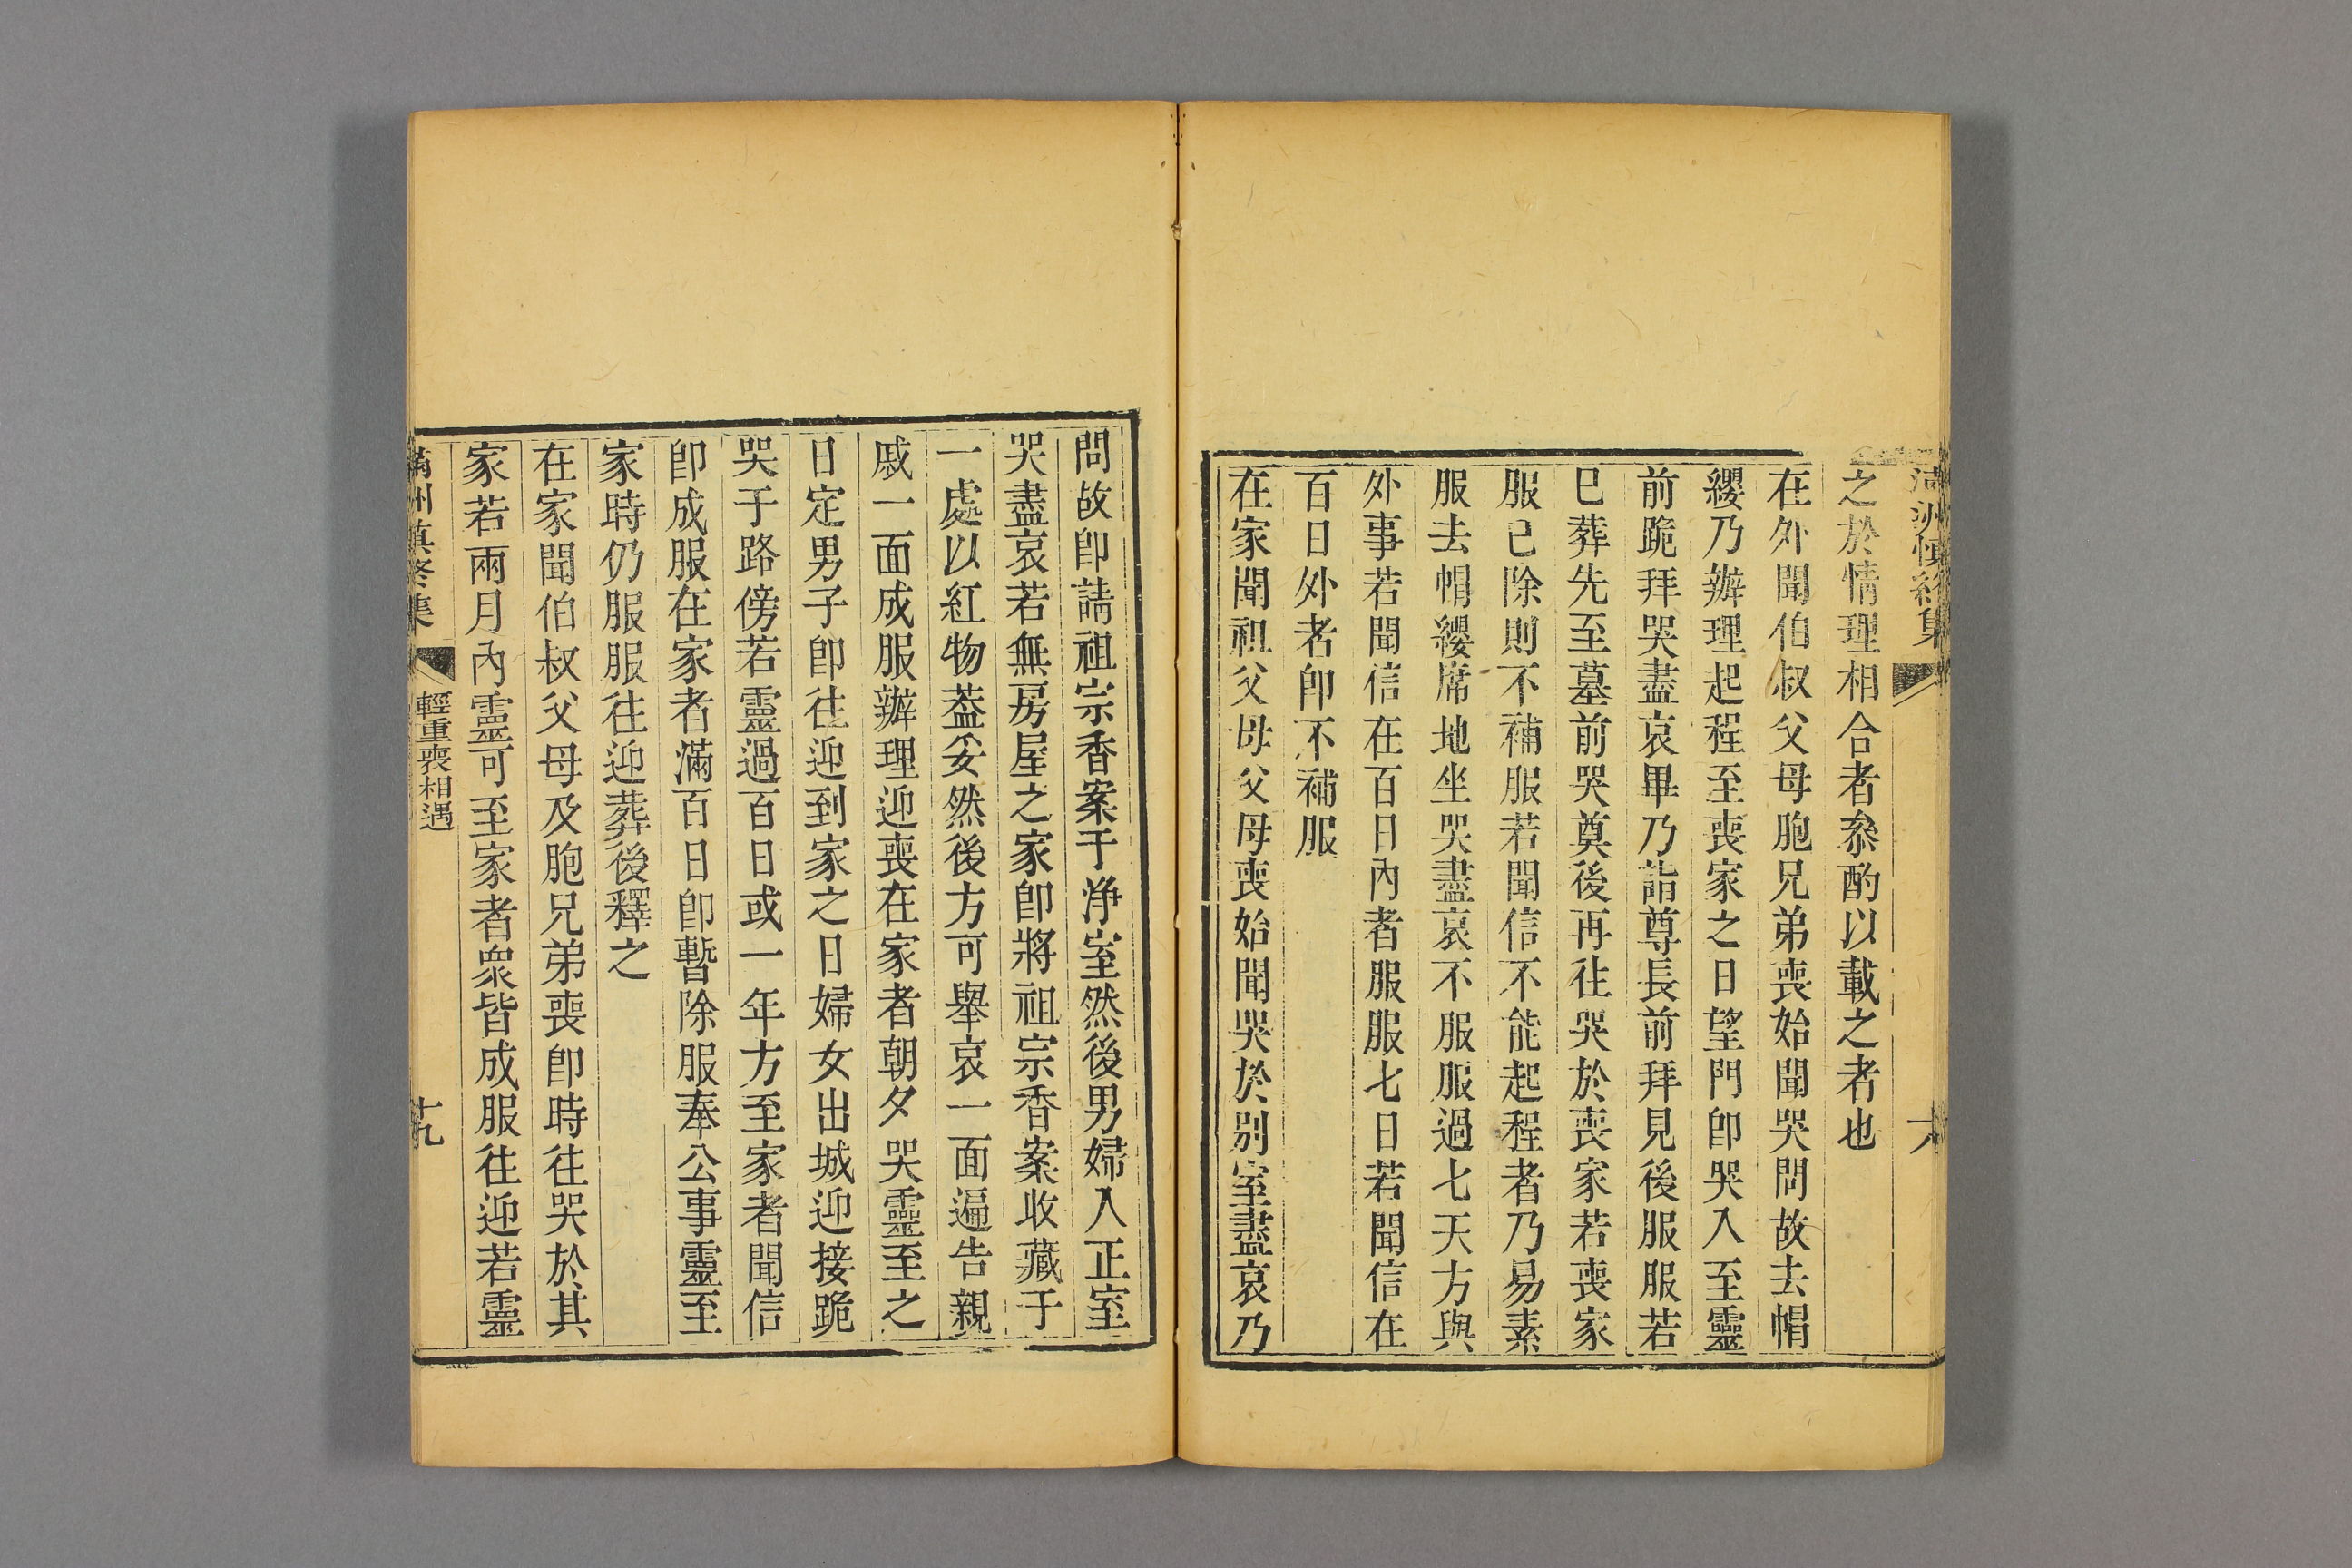 滿洲慎終集
之於情理相合者叅酌以載之者也
在外聞伯叔父母胞兄弟喪始聞哭問故去帽
纓乃辦理起程至喪家之日望門卽哭入至靈
前跪拜哭盡哀畢乃詣尊長前拜見後服服若
已葬先至墓前哭奠後再徃哭於喪家若喪家
服已除則不補服若聞信不能起程者乃易素
服去帽纓席地坐哭盡哀不服服過七天方與
外事若聞信在百日內者服服七日若聞信在
百日外者卽不補服
在家聞祖父母父母喪始聞哭於別室盡哀乃
問故卽請祖宗香案于淨室然後男婦入正室
哭盡哀若無房屋之家卽將祖宗香案收藏于
一處以紅物葢妥然後方可舉哀一面遍告親
戚一面成服辦理迎喪在家者朝夕哭靈至之
日定男子卽徃迎到家之日婦女出城迎接跪
哭于路傍若靈過百日或一年方至家者聞信
卽成服在家者滿百日卽暫除服奉公事靈至
家時仍服服徃迎葬後釋之
在家聞伯叔父母及胞兄弟喪卽時徃哭於其
家若兩月內靈可至家者衆皆成服徃迎若靈
滿洲慎終集
輕重喪相遇
十九